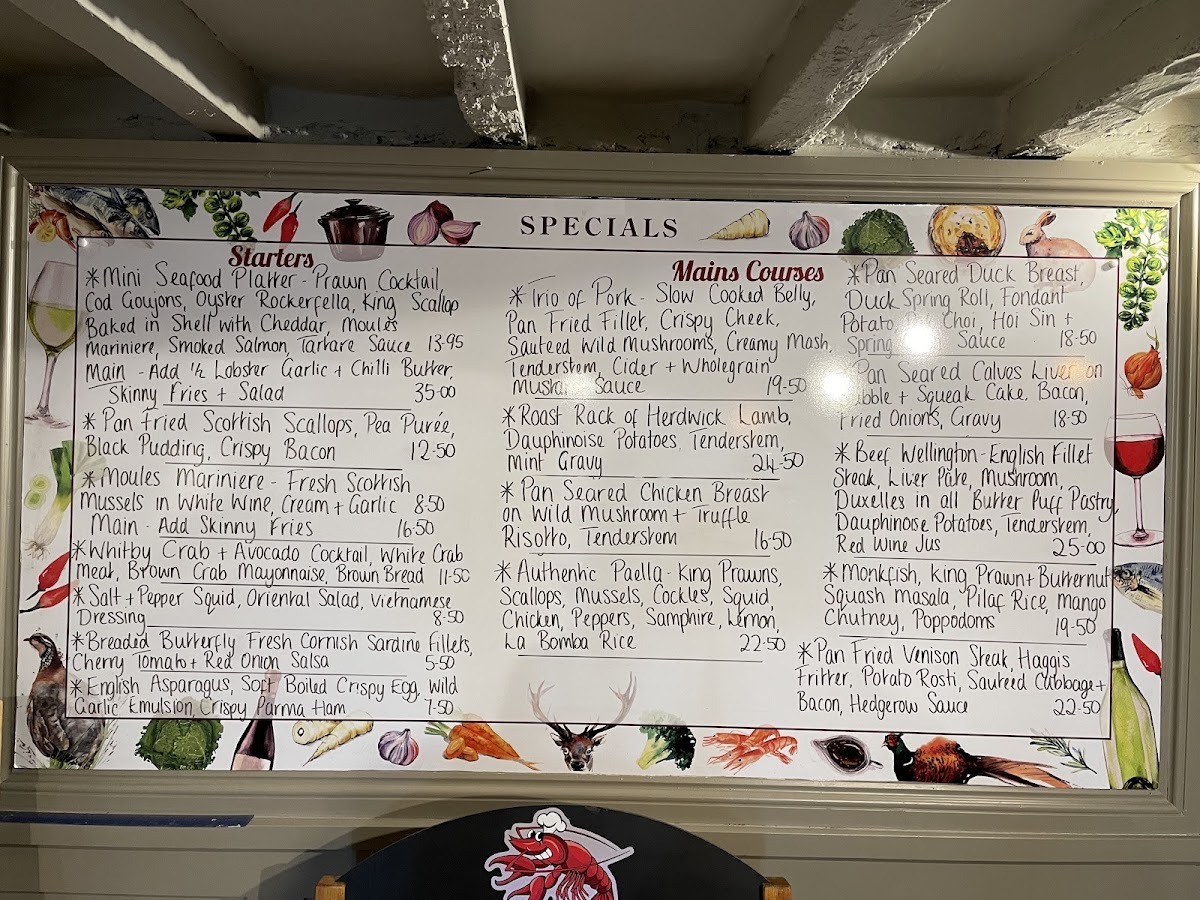 SPECIALS
Starters
*Mini Seafood Platter - Prawn Cocktail,
Cod Goujons, Oyster Rockerfella, King Scallop
Baked in Shell with Cheddar, Moules
Mariniere, Smoked Salmon, Tartare Sauce 13-95
Main - Add ½ Lobster Garlic + Chilli Butter,
Skinny Fries + Salad 35-00
* Pan Fried Scottish Scallops, Pea Purée,
Black Pudding, Crispy Bacon 12-50
*Moules Mariniere - Fresh Scottish
Mussels in White Wine, Cream + Garlic 8-50
Main - Add Skinny Fries 16-50
*Whitby Crab + Avocado Cocktail, White Crab
Meat, Brown Crab Mayonnaise, Brown Bread 11-50
*Salt + Pepper Squid, Oriental Salad, Vietnamese
Dressing 8-50
*Breaded Butterfly Fresh Cornish Sardine Fillets,
Cherry Tomato + Red Onion Salsa 5-50
*English Asparagus, Soft Boiled Crispy Egg, Wild
Garlic Emulsion, Crispy Parma Ham 7-50
Mains Courses
*Trio of Pork - Slow Cooked Belly,
Pan Fried Fillet, Crispy Cheek,
Sauteed Wild Mushrooms, Creamy Mash,
Tenderstem, Cider + Wholegrain
Mustard Sauce 19-50
*Roast Rack of Herdwick Lamb,
Dauphinoise Potatoes, Tenderstem,
Mint Gravy 24-50
*Pan Seared Chicken Breast
on Wild Mushroom + Truffle
Risotto, Tenderstem 16-50
*Authentic Paella - King Prawns,
Scallops, Mussels, Cockles, Squid,
Chicken, Peppers, Samphire, Lemon,
La Bomba Rice 22-50
*Pan Seared Duck Breast,
Duck Spring Roll, Fondant
Potato, Choi, Hoi Sin +
Spring Sauce 18-50
Pan Seared Calves Liver on
Bubble + Squeak Cake, Bacon,
Fried Onions, Gravy 18-50
*Beef Wellington - English Fillet
Steak, Liver Pâte, Mushroom,
Duxelles in all Butter Puff Pastry,
Dauphinose Potatoes, Tenderstem,
Red Wine Jus 25-00
*Monkfish, King Prawn + Butternut
Squash Masala, Pilaf Rice, Mango
Chutney, Poppodoms 19-50
*Pan Fried Venison Steak, Haggis
Fritter, Potato Rosti, Sauteed Cabbage +
Bacon, Hedgerow Sauce 22-50